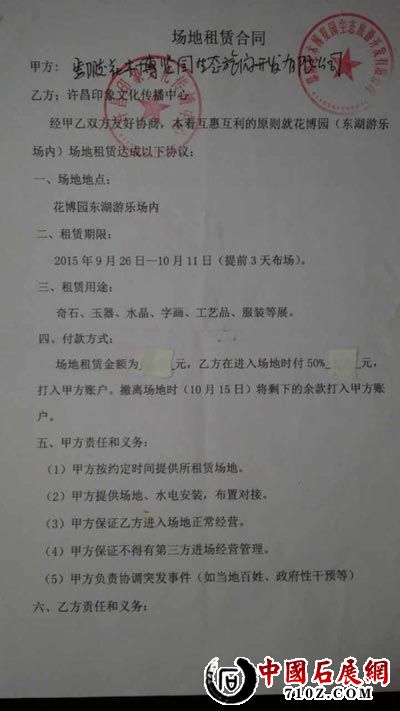 场地租赁合同
甲方：鄢陵花木博览园生态旅游开发有限公司
乙方：许昌印象文化传播中心
经甲乙双方友好协商，本着互惠互利的原则就花博园（东湖游乐
场内）场地租赁达成以下协议：
一、场地地点：
花博园东湖游乐场内
二、租赁期限：
2015年9月26日—10月11日（提前3天布场）。
三、租赁用途：
奇石、玉器、水晶、字画、工艺品、服装等展。
四、付款方式：
场地租赁金额为 元，乙方在进入场地时付50% 元，
打入甲方账户。撤离场地时（10月15日）将剩下的余款打入甲方账
户。
五、甲方责任和义务：
（1）甲方按约定时间提供所租赁场地。
（2）甲方提供场地、水电安装，布置对接。
（3）甲方保证乙方进入场地正常经营。
（4）甲方保证不得有第三方进场经营管理。
（5）甲方负责协调突发事件（如当地百姓、政府性干预等）
六、乙方责任和义务：
中國石展網
710Z.COM